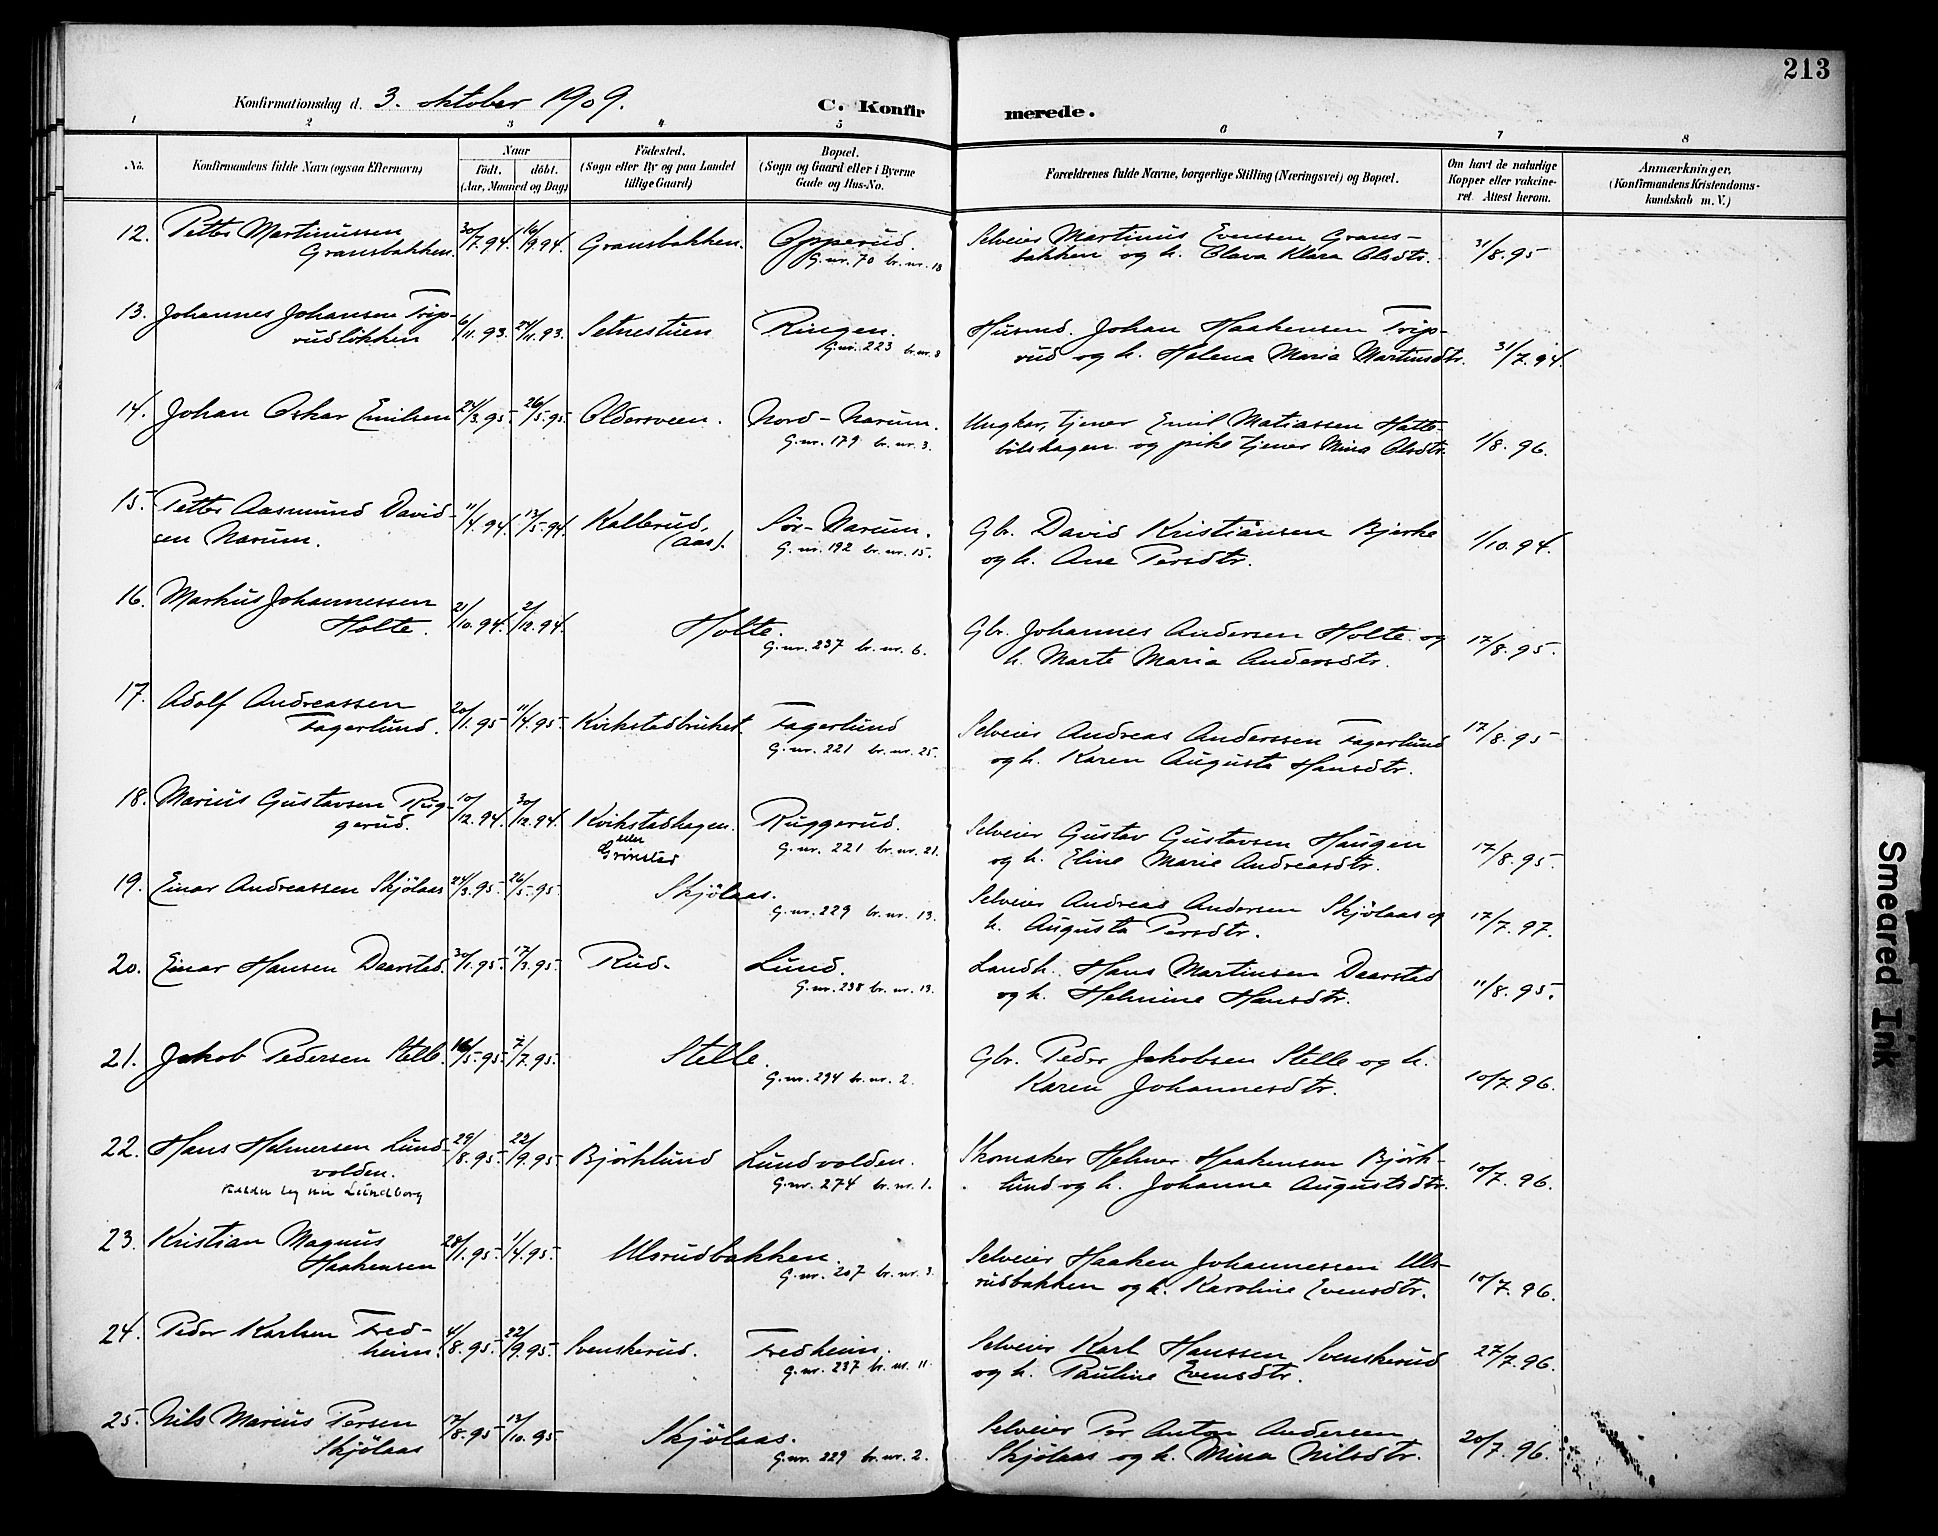 213
Konfirmationsdag d. 3. oktober 1909. C. Konfirmerede.
1 2 3 4 5 6 7 8
No. Konfirmandens fulde Navn (ogsaa Efternavn) Naar födt. döbt. (Aar, Maaned og Dag) Födested. (Sogn eller By og paa Landet tillige Gaard) Bopæl. (Sogn og Gaard eller i Byerne Gade og Hus-No. Forældrenes fulde Navne, borgerlige Stilling (Næringsvei) og Bopæl. Om havt de naturlige Kopper eller vakcineret. Attest herom. Anmærkninger, (Konfirmandens Kristendomskundskab m. V.)
12. Petter Martinussen 30/7.94. 16/9.94. Gransbakken. Opperud. Selveier Martinus Evensen Grans- 31/8.95
Gransbakken. G.nr. 70 br.nr. 18 bakken og h. Olava Klara Olsdtr.
13. Johannes Johansen Trip- 6/11.93. 24/11.93. Setnestuen Ringen. Husmd. Johan Haakensen Trip- 31/7.94.
rudlökken G.nr. 223 br.nr. 8 rud og h. Helena Maria Martinsdtr.
14. Johan Oskar Emilsen 24/3.95. 26/5.95. Oldersveen. Nord-Narum. Ungkar, tjener Emil Matiassen Hatte- 1/8.96.
G.nr. 179 br.nr. 3. bölshagen og pike tjener Mina Olsdtr.
15. Petter Aasmund David- 11/4.94. 13/5.94. Kalbrud, Sör-Narum. Gbr. David Kristiansen Bjerke 1/10.94.
sen Narum. (Aas). G.nr. 192 br.nr. 15. og h. Ane Persdtr.
16. Markus Johannessen 21/10.94. 2/12.94. Holte. Gbr. Johannes Andersen Holte og 17/8.95.
Holte. G.nr. 237 br.nr. 6. h. Marte Maria Andersdtr.
17. Adolf Andreassen 20/1.95 11/4.95. Kvikstadbruket. Fagerlund Selveier Andreas Anderssen Fagerlund 17/8.95
Fagerlund. G.nr. 221 br.nr. 25. og h. Karen Augusta Hansdtr.
18. Marius Gustavsen Rug- 10/12.94. 30/12.94. Kvikstadhagen. Ruggerud. Selveier Gustav Gustavsen Haugen 17/8.95
gerud. eller Grinstad G.nr. 221 br.nr. 21. og h. Eline Marie Andreasdtr.
19. Einar Andreassen Skjölaas 24/3.95. 26/5.95 Skjölaas. Selveier Andreas Andersen Skjölaas og 17/7.97.
G.nr. 229 br.nr. 13. h. Augusta Persdtr.
20. Einar Hansen Daarstad. 30/1.95. 17/3.95. Rud. Lund. Landh. Hans Martinsen Daarstad 11/8.95.
G.nr. 238 br.nr. 13. og h. Helmine Hansdtr.
21. Jakob Pedersen Stelle. 16/5.95. 7/7.95. Stelle. Gbr. Peder Jakobsen Stelle og h. 10/7.96.
G.nr. 294 br.nr. 2. Karen Johannesdtr.
22. Hans Helmersen Lund- 29/8.95. 22/9.95. Björklund Lundvolden. Skomaker Helmer Haakensen Björk- 10/7.96.
volden. G.nr. 274 br.nr. 1. lund og h. Johanne Augustsdtr.
kalder sig nu Lundborg
23. Kristian Magnus 28/1.95. 1/4.95. Ulsrudbakken. Selveier Haaken Johannessen Uls- 10/7.96.
Haakensen G.nr. 207 br.nr. 3. rudbakken og h. Karoline Evensdtr.
24. Peder Karlsen Fred- 4/8.95. 22/9.95. Svenskerud. Fredheim. Selveier Karl Hanssen Svenskerud 27/7.96.
heim. G.nr. 237 br.nr. 11. og h. Pauline Evensdtr.
25. Nils Marius Persen 17/8.95 13/10.95. Skjölaas. Selveier Per Anton Andersen 20/7.96.
Skjölaas G.nr. 229 br.nr. 2. Skjölaas og h. Mina Nilsdtr.
Smeared Ink